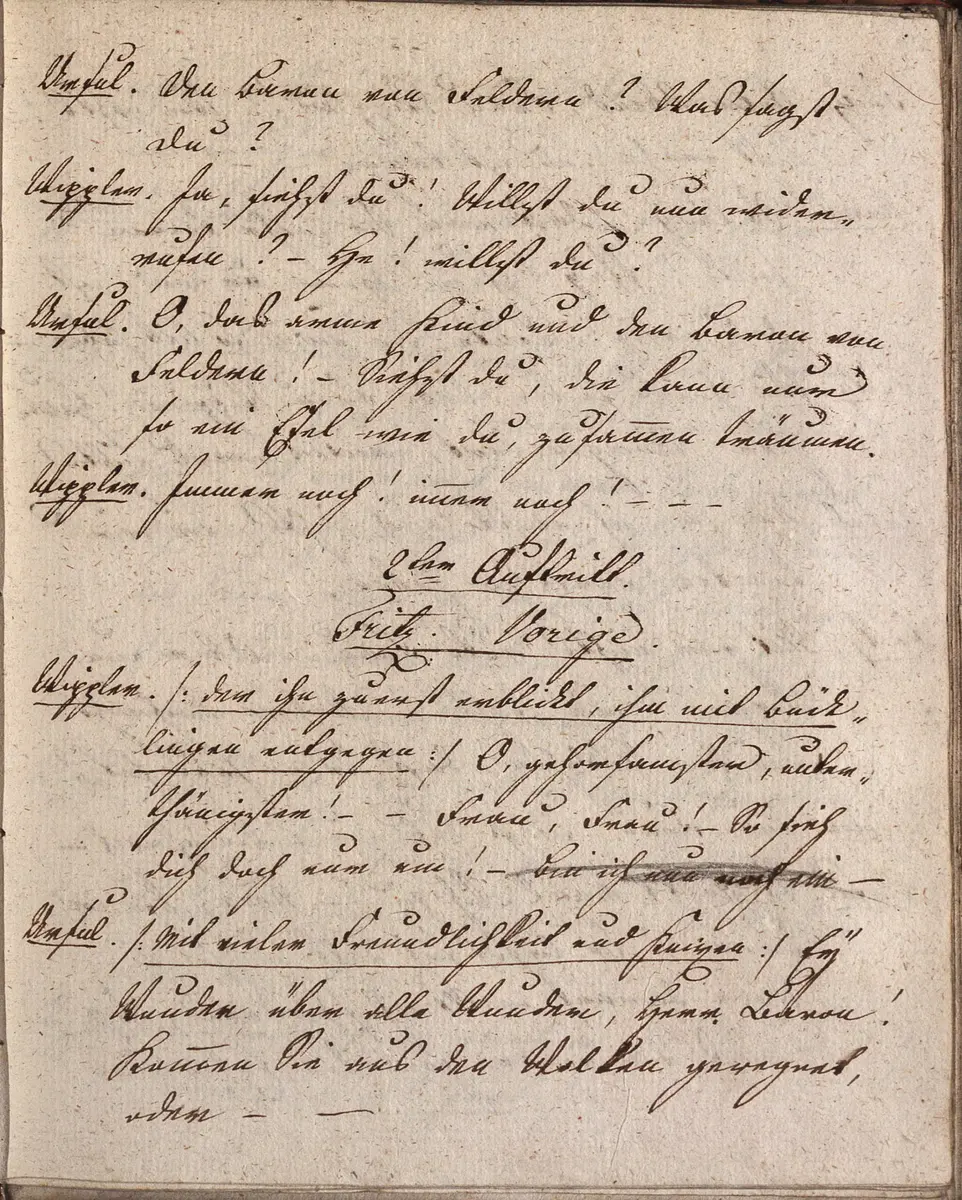 Ursul. Den Baron von Feldern? Was sagst
du?
Wippler. Ja, siehst du! Willst du nun wider-
rufen? – He! willst du?
Ursul. O, das arme Kind und den Baron von
Feldern! – Siehst du, die kann nur
so ein Esel wie du, zusam̄en träumen.
Wippler. Immer noch! im̄er noch! – – –
2ter Auftritt.
Fritz. Vorige.
Wippler. /: der ihn zuerst erblickt, ihm mit Bück-
lingen entgegen :/ O, gehorsamster, unter-
thänigster! – – Frau, Frau! – So sieh
dich doch nur um! – bin ich nun noch ein –
Ursul. /: Mit vieler Freundlichkeit und Knixen :/ Ey
Wunder über alle Wunder, Herr Baron!
Kom̄en Sie aus den Wolken geregnet,
oder – –